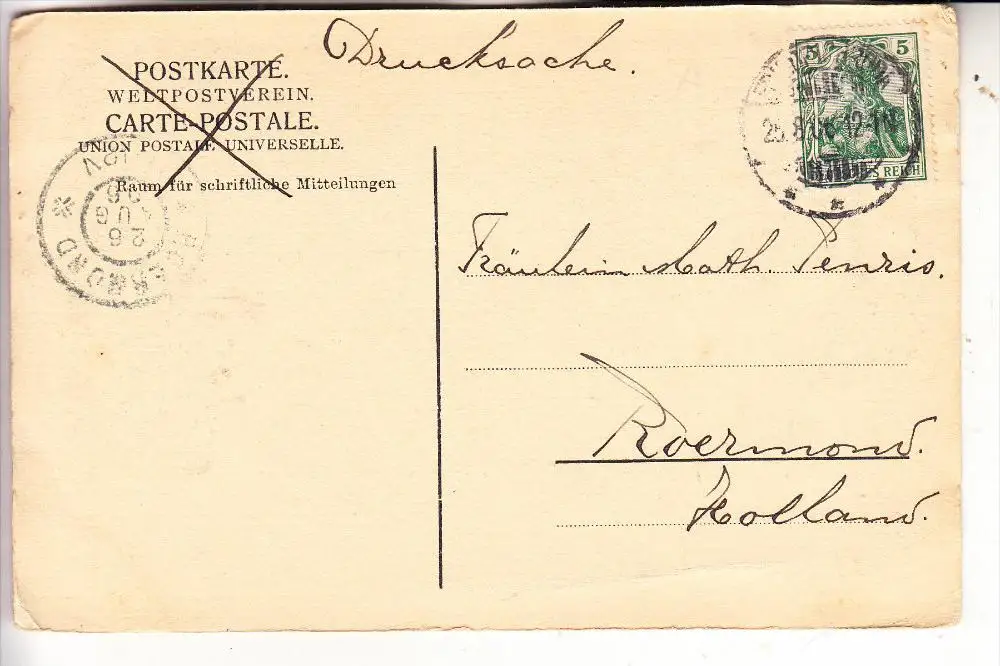 Drucksache.
POSTKARTE.
WELTPOSTVEREIN.
CARTE-POSTALE.
UNION POSTALE UNIVERSELLE.
Raum für schriftliche Mitteilungen
5 5
REICH
25.8.06. 12-1N
ROERMOND
26
AUG
06
Fräulein Math. Penris.
Roermond.
Holland.